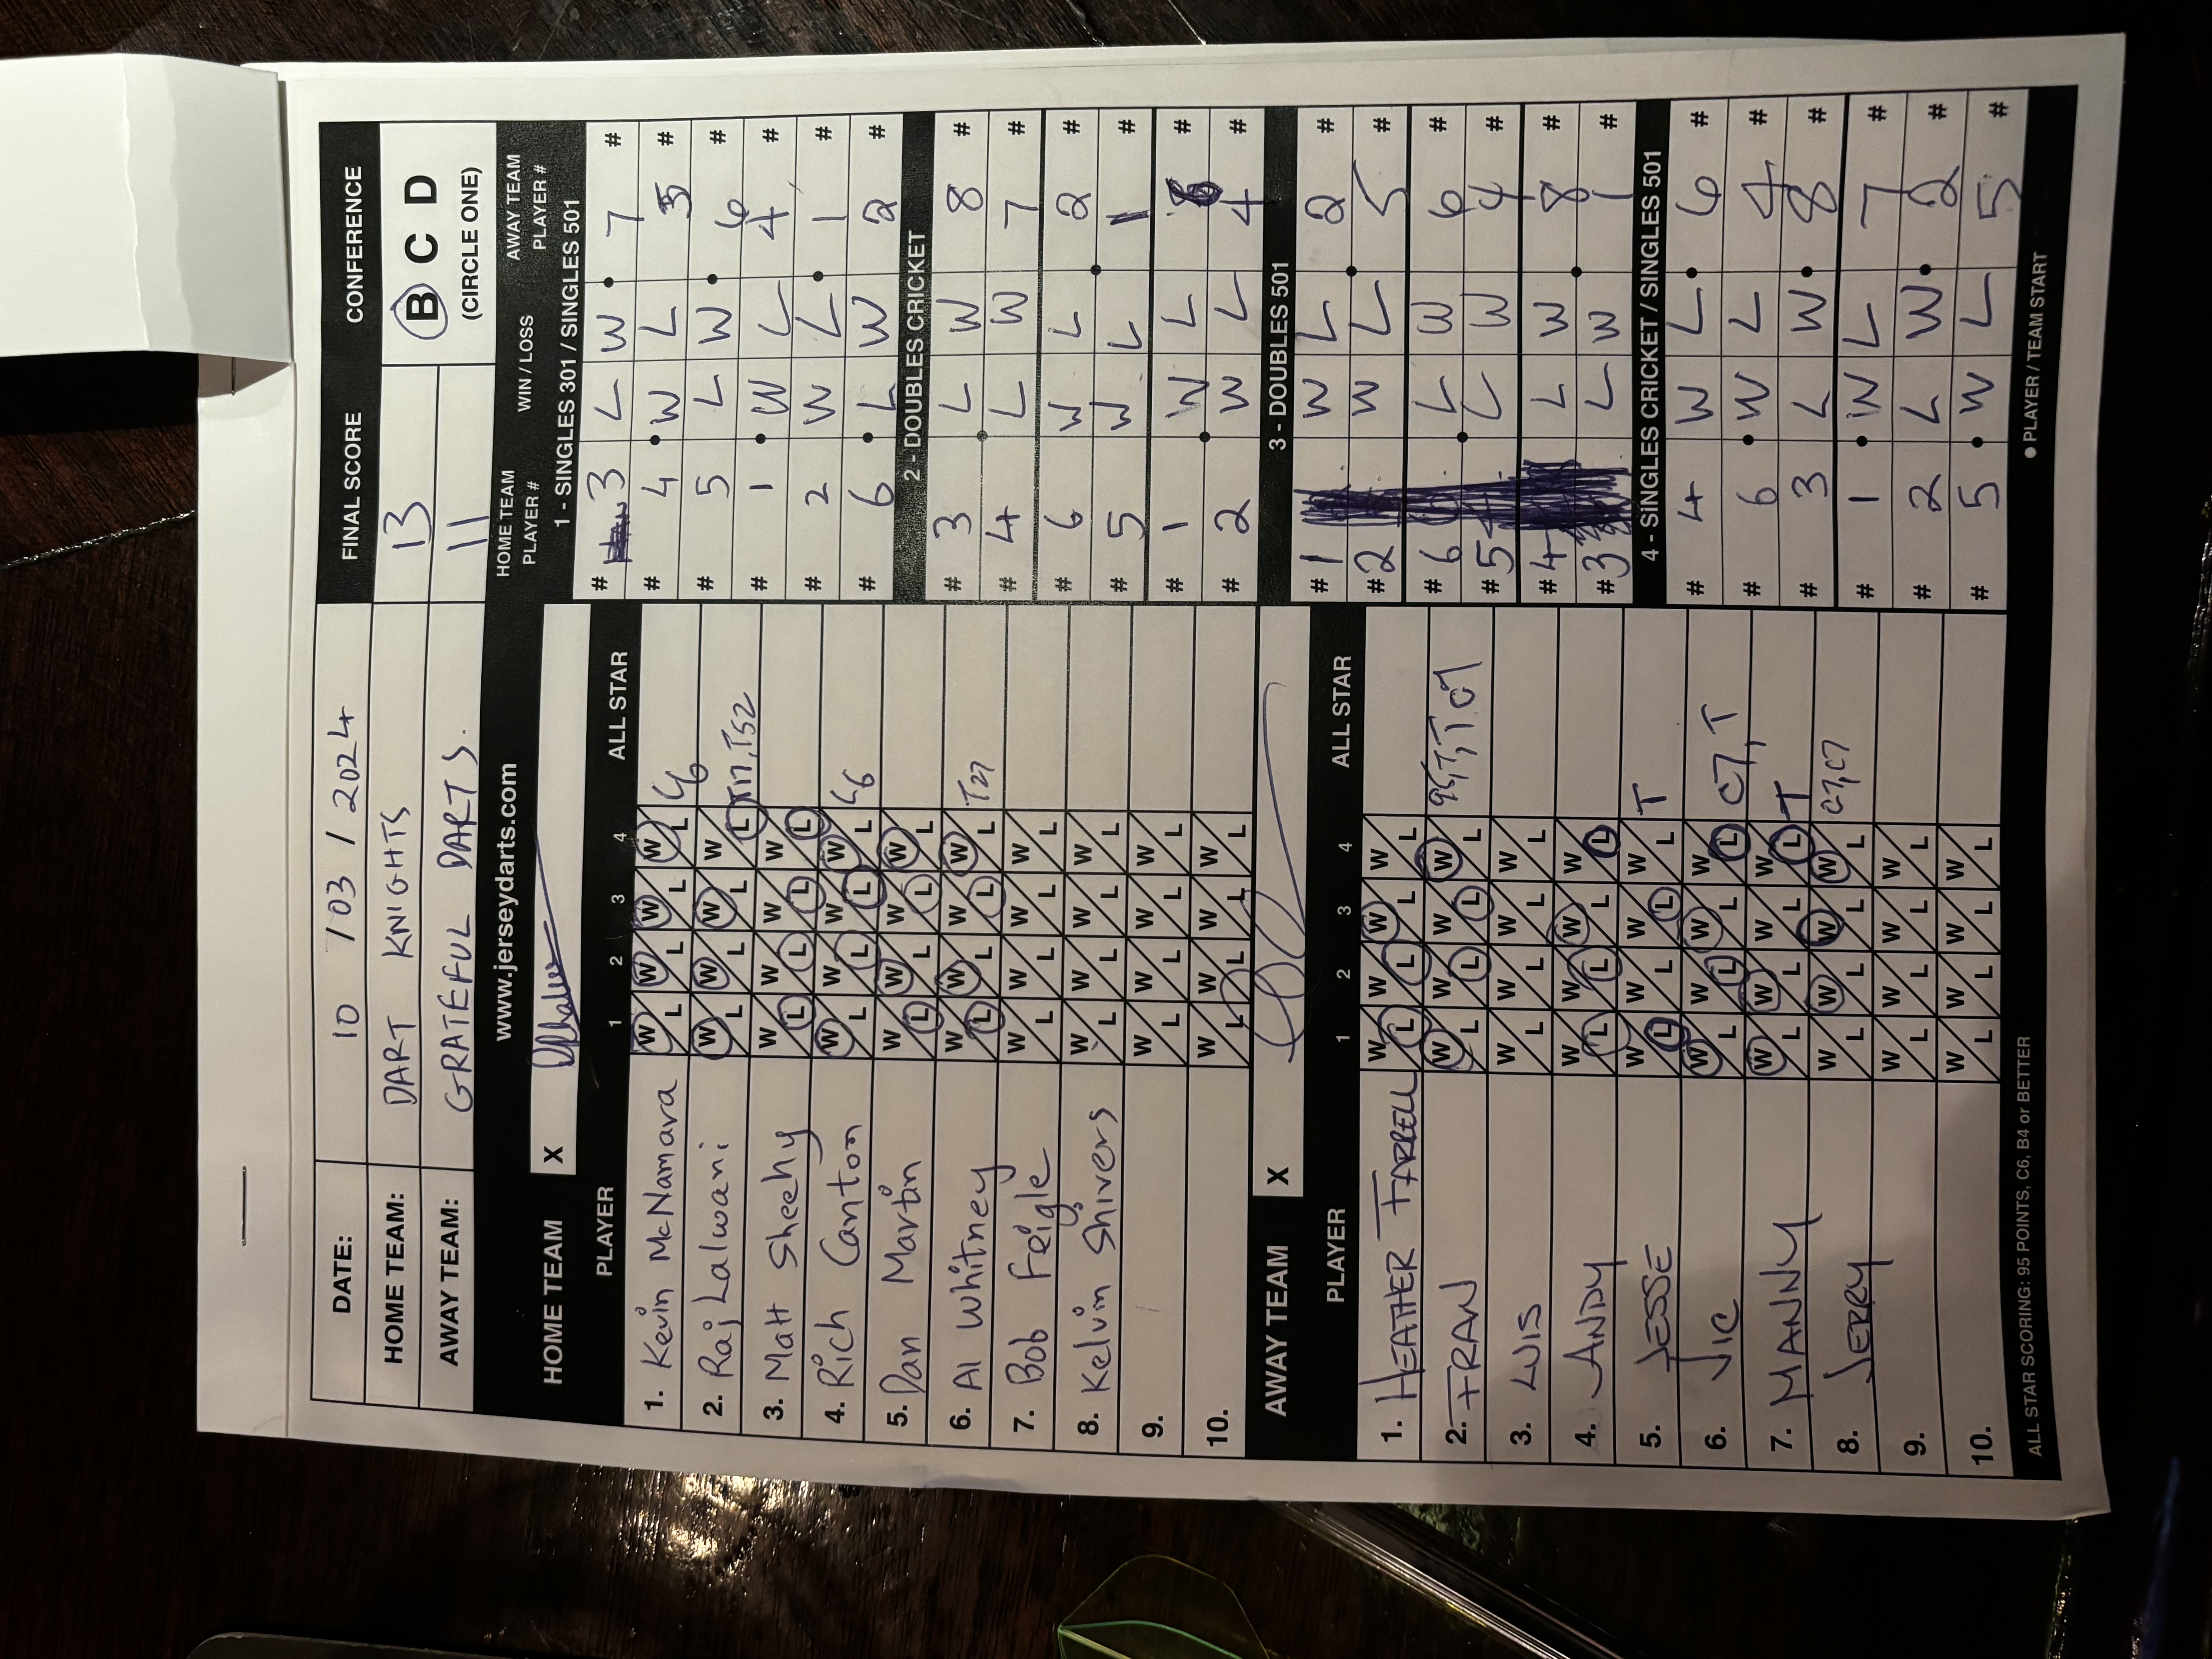 DATE: 10 / 03 / 2024 FINAL SCORE CONFERENCE
HOME TEAM: DART KNIGHTS 13 B C D
AWAY TEAM: GRATEFUL DARTS. 11 (CIRCLE ONE)
www.jerseydarts.com
HOME TEAM X
PLAYER 1 2 3 4 ALL STAR
1. Kevin McNamara W L W L W L W L
2. Raj Lalwani W L W L W L W L
3. Matt Sheehy W L W L W L W L
4. Rich Canton W L W L W L W L
5. Dan Martin W L W L W L W L
6. Al Whitney W L W L W L W L T27
7. Bob Feigle W L W L W L W L
8. Kelvin Shivers W L W L W L W L
9. W L W L W L W L
10. W L W L W L W L
AWAY TEAM X
PLAYER 1 2 3 4 ALL STAR
1. HEATHER FARRELL W L W L W L W L
2. FRAN W L W L W L W L
3. LUIS W L W L W L W L
4. ANDY W L W L W L W L
5. JESSE W L W L W L W L T
6. VIC W L W L W L W L C7, T
7. MANNY W L W L W L W L T
8. JERRY W L W L W L W L C7, C7
9. W L W L W L W L
10. W L W L W L W L
ALL STAR SCORING: 95 POINTS, C6, B4 or BETTER
HOME TEAM PLAYER # WIN / LOSS AWAY TEAM PLAYER #
1 - SINGLES 301 / SINGLES 501
# 3 L W 7 #
# 4 W L 5 #
# 5 L W 6 #
# 1 W L 4 #
# 2 W L 1 #
# 6 L W 2 #
2 - DOUBLES CRICKET
# 3 L W 8 #
# 4 L W 7 #
# 6 W L 2 #
# 5 W L 1 #
# 1 W L #
# 2 W L 4 #
3 - DOUBLES 501
# 1 W L 2 #
# 2 W L 5 #
# 6 L W 6 #
# 5 L W 4 #
# 4 L W 8 #
# 3 L W 1 #
4 - SINGLES CRICKET / SINGLES 501
# 4 W L 6 #
# 6 W L 4 #
# 3 L W 8 #
# 1 W L 7 #
# 2 L W 2 #
# 5 W L 5 #
● PLAYER / TEAM START